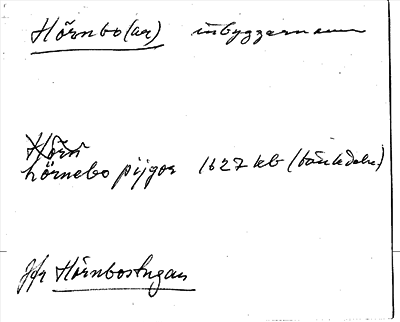 Hörnbo(ar) inbyggarnamn
Hörn
hörnebo pijgor 1627 kb (bänkdeln.)
Jfr Hörnbostugan